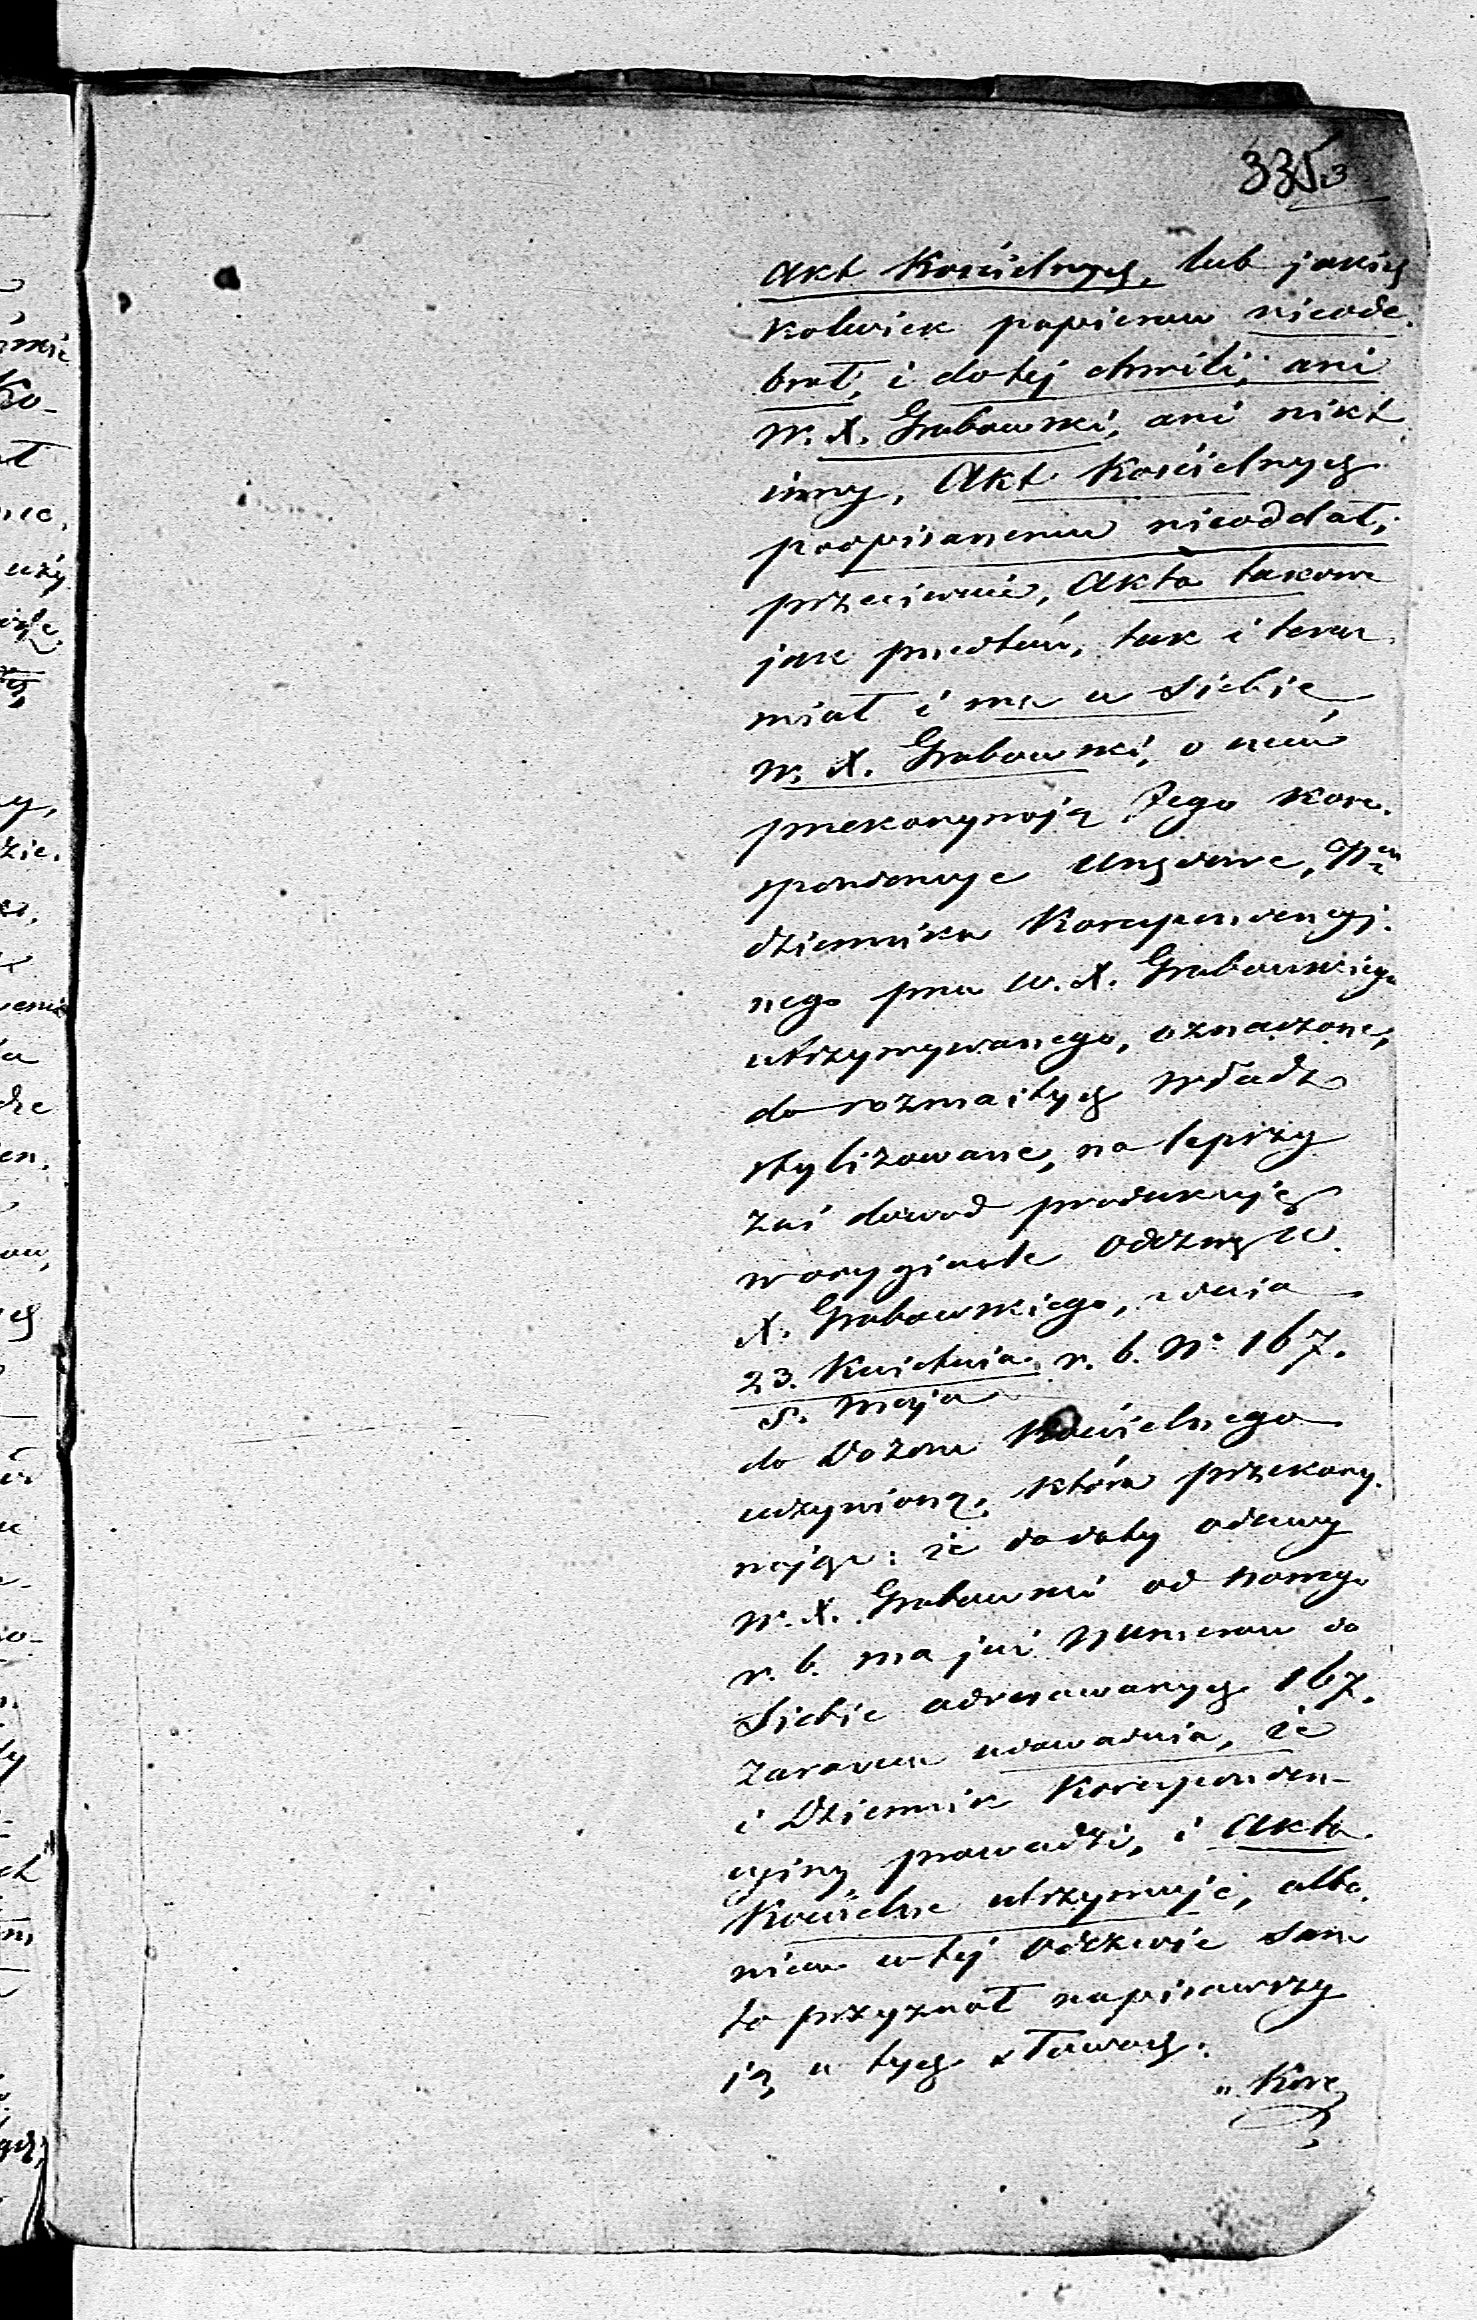 335. 3
Akt Kościelnych, lub jakich
kolwiek papierow nieode-
brał, i dotej chwili, ani
W. X. Grabowski, ani nikt
inny, Akt Kościelnych
podpisanemu nieoddał,
przeciwnie, Akta takowe
jak przedtem, tak i teraz
miał i ma u siebie,
W. X. Grabowski, o czem
przekonywają Jego kore-
spondencye Urzędowe,
dziennika Korespondencyj-
nego przez W. X. Grabowskiego
utrzymywanego, oznaczone,
do rozmaitych Władz
stylizowane, na lepszy
zaś dowod produkuję
w oryginale Odezwę W.
X. Grabowskiego, z dnia
23. Kwietnia r. b. No 167.
5. Maja
do Dozoru Kościelnego
uczynioną, która przekony-
wając: że do daty odezwy
W. X. Grabowski od Nowego
r. b. ma już Numerow do
Siebie adresowanych 167.
zarazem udowadnia, że
i Dziennik Koresponden-
cyjny prowadzi, i Akta
Kościelne utrzymuje, albo-
wiem w tej Odezwie sam
to przyznał napisawszy
ją w tych słowach.
„ Kore